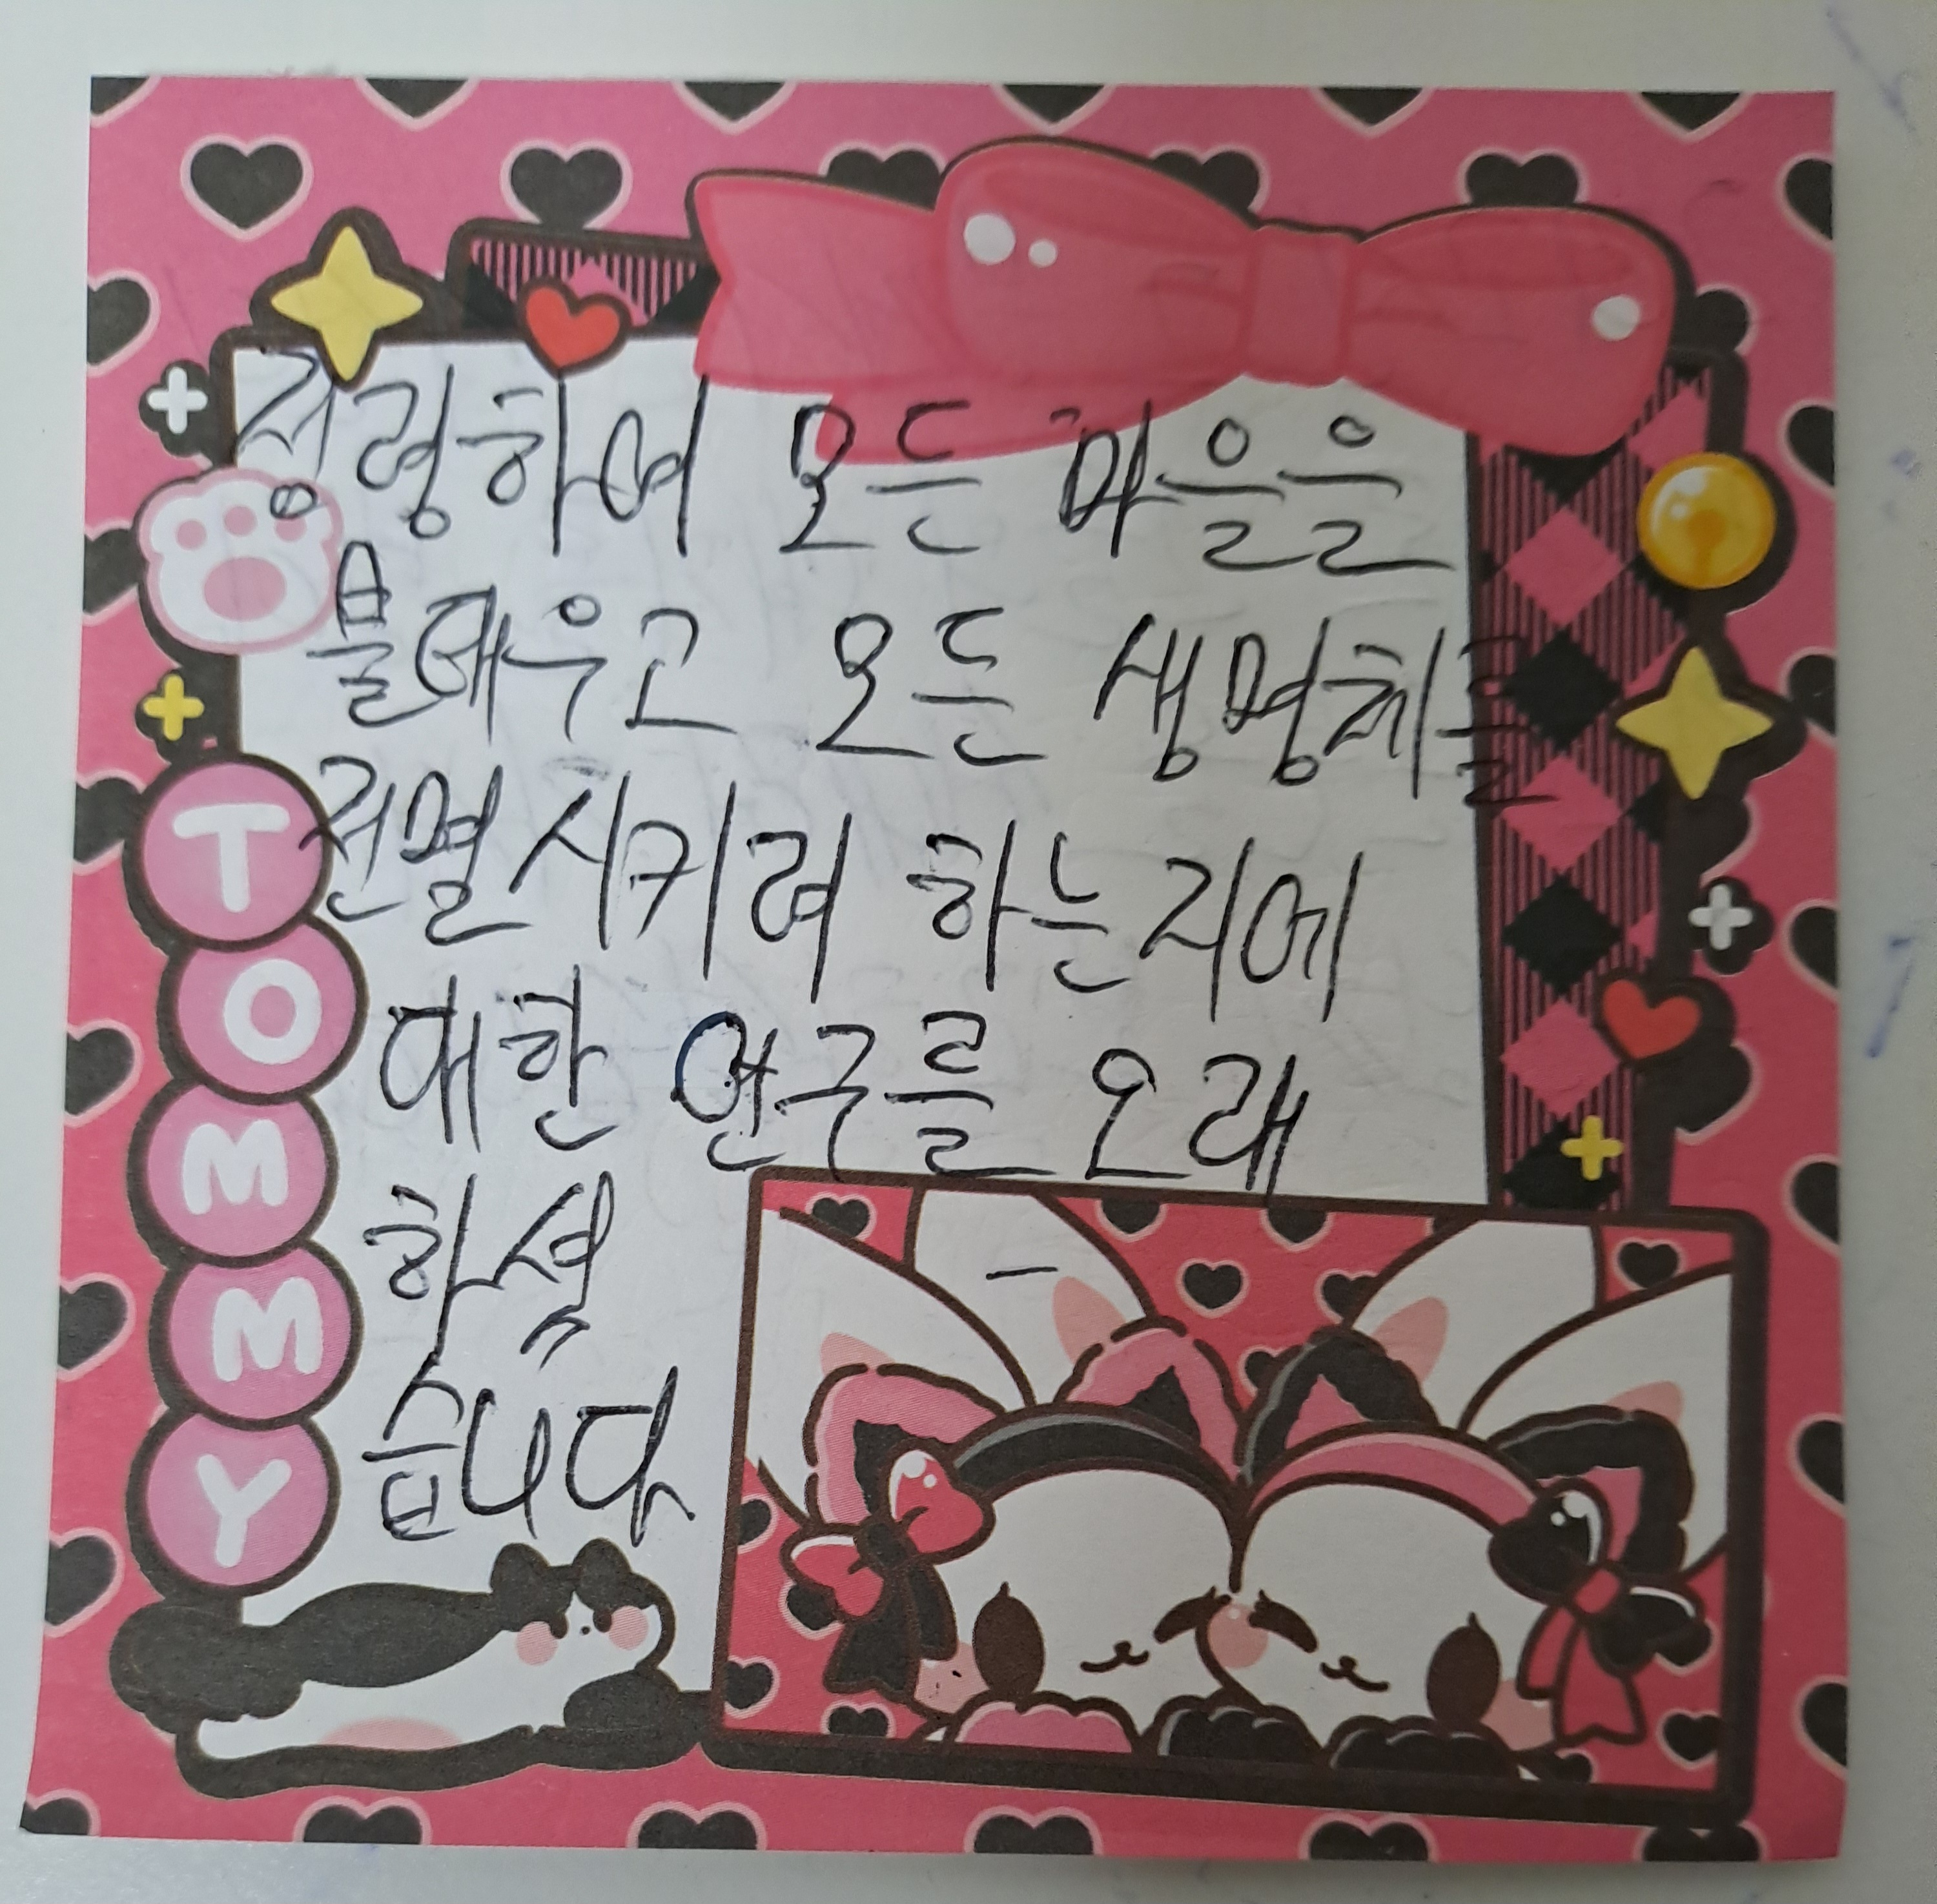 점령하여 모든 마을을
불태우고 모든 생명체를
전멸시키려 하는지에
대한 연구를 오래
하셨
습니다
TOMMY